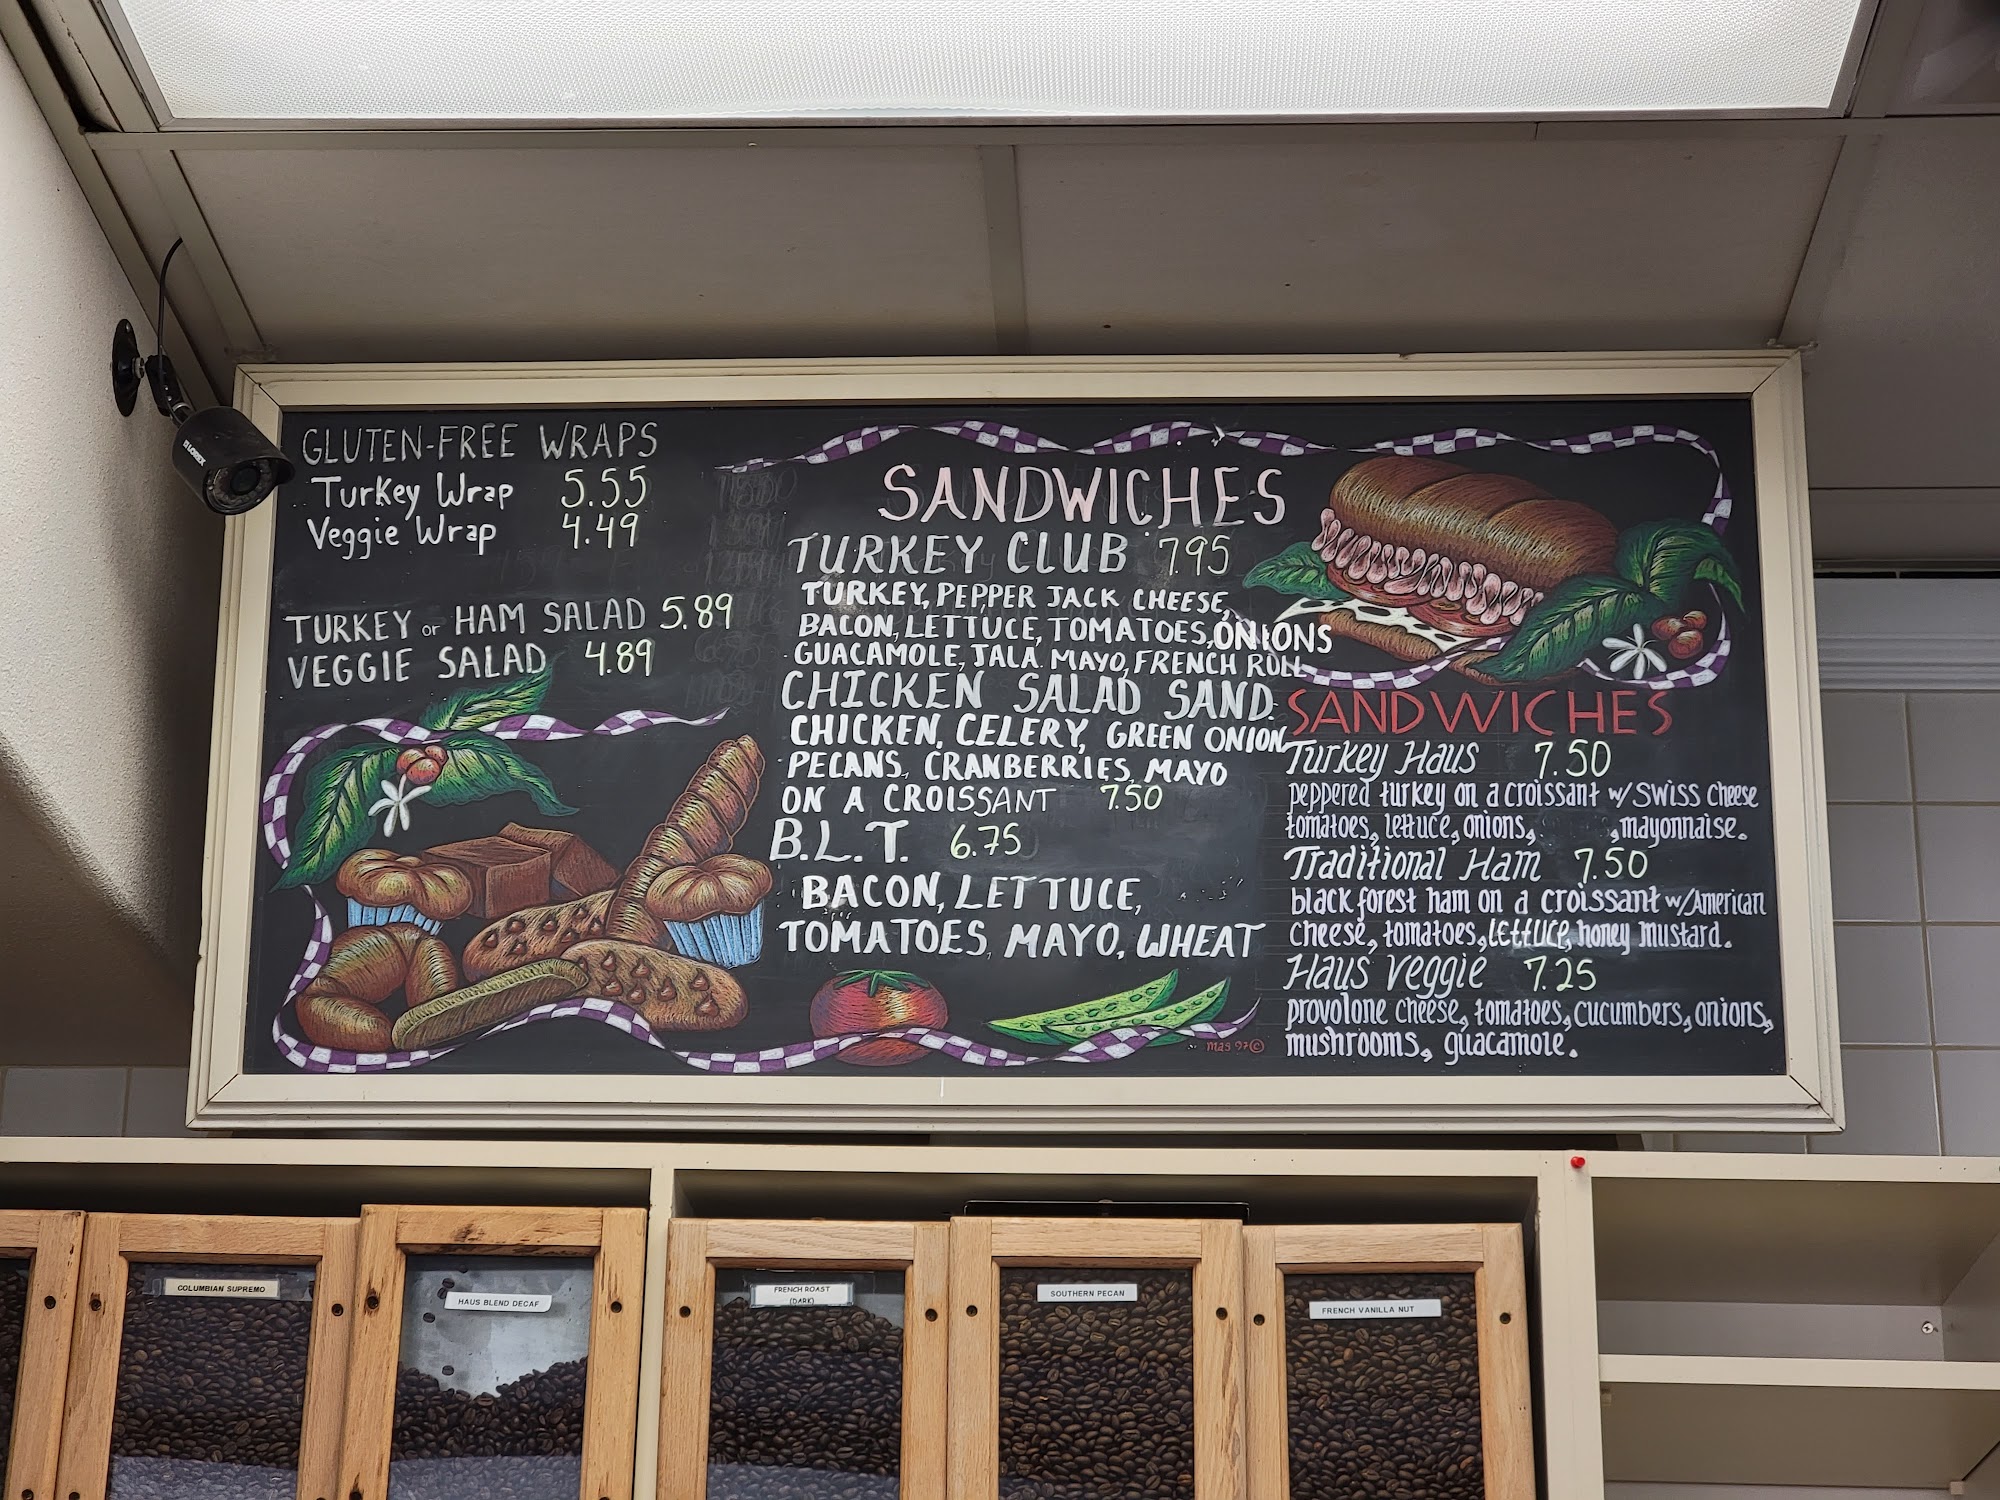 GLUTEN-FREE WRAPS
Turkey Wrap 5.55
Veggie Wrap 4.49
TURKEY or HAM SALAD 5.89
VEGGIE SALAD 4.89
SANDWICHES
TURKEY CLUB 7.95
TURKEY, PEPPER JACK CHEESE,
BACON, LETTUCE, TOMATOES, ONIONS
GUACAMOLE, JALA. MAYO, FRENCH ROLL
CHICKEN SALAD SAND.
CHICKEN, CELERY, GREEN ONION
PECANS, CRANBERRIES, MAYO
ON A CROISSANT 7.50
B.L.T. 6.75
BACON, LETTUCE,
TOMATOES, MAYO, WHEAT
mas 97©
SANDWICHES
Turkey Haus 7.50
peppered turkey on a croissant w/ swiss cheese
tomatoes, lettuce, onions, , mayonnaise.
Traditional Ham 7.50
black forest ham on a croissant w/American
cheese, tomatoes, lettuce, honey mustard.
Haus Veggie 7.25
provolone cheese, tomatoes, cucumbers, onions,
mushrooms, guacamole.
LOREX
COLUMBIAN SUPREMO
HAUS BLEND DECAF
FRENCH ROAST
(DARK)
SOUTHERN PECAN
FRENCH VANILLA NUT